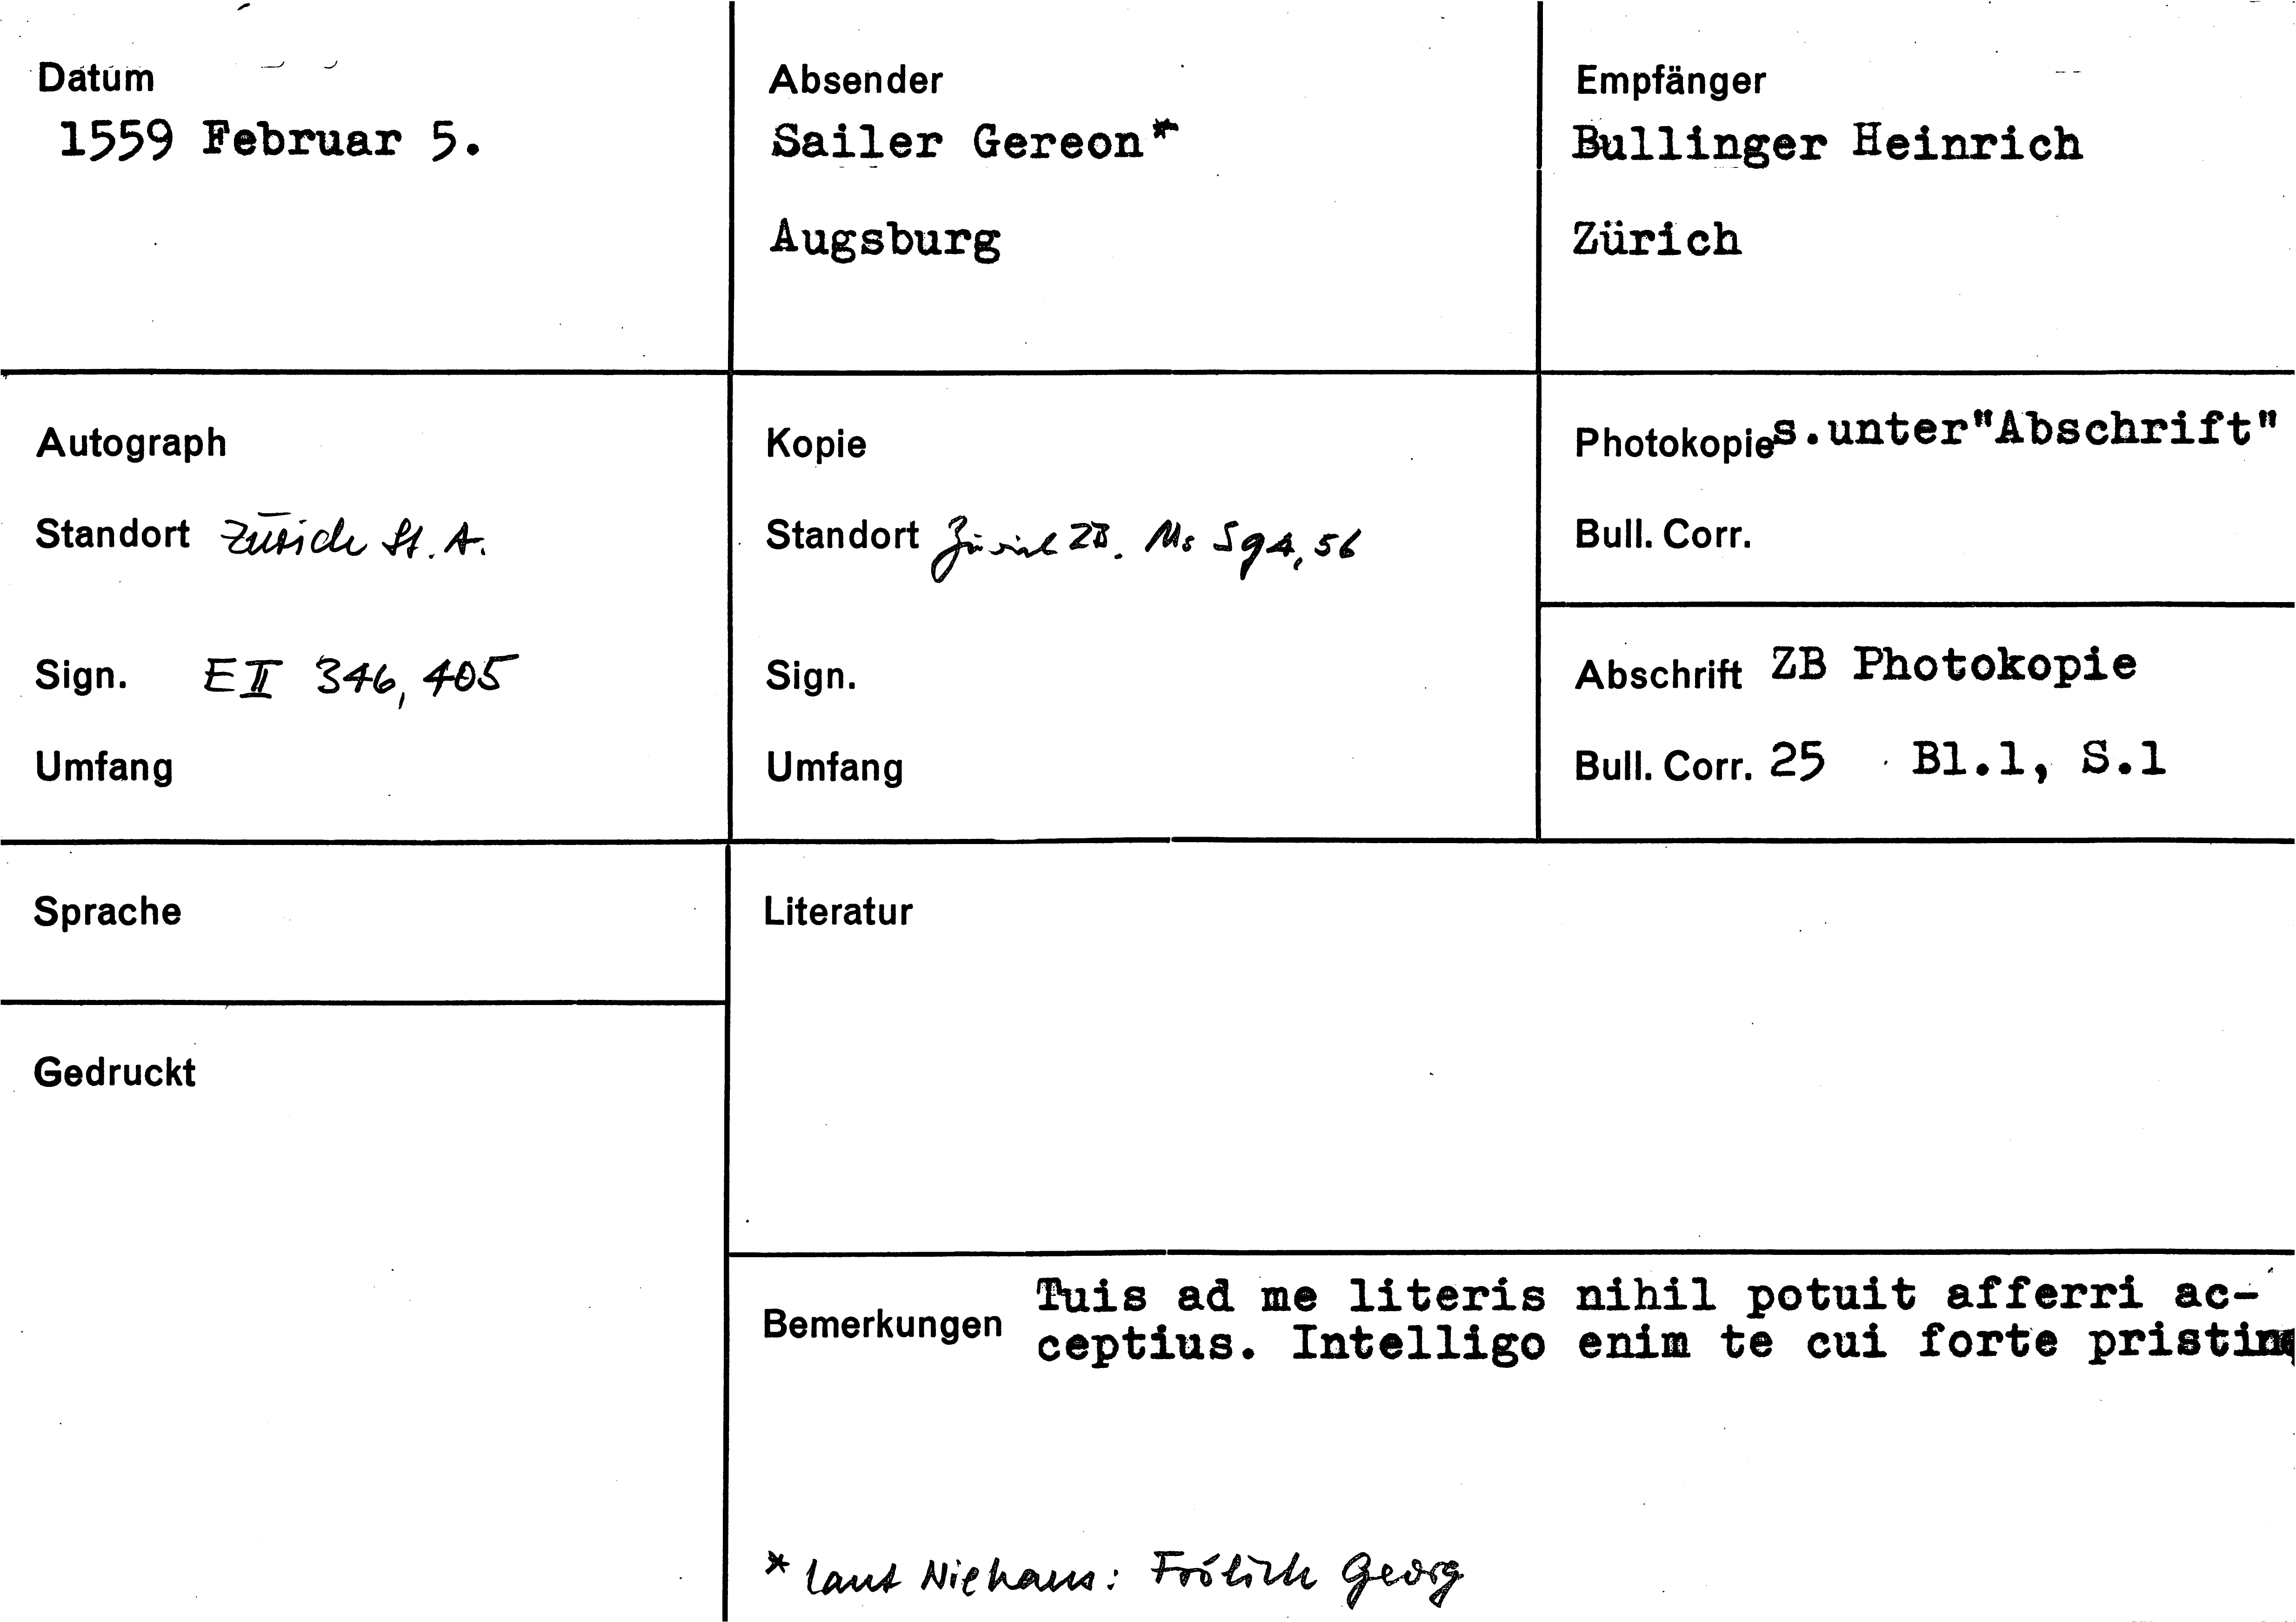 Datum
1559 Februar 5.
Absender
Sailer Gereon*
Augsburg
Empfänger
Bullinger Heinrich
Zürich
Autograph
Standort Zürich St. A.
Sign. E II 346, 405
Umfang
Kopie
Standort Zürich ZB. Ms S 94, 56
Sign.
Umfang
Photokopie s.unter"Abschrift"
Bull. Corr.
Abschrift ZB Photokopie
Bull. Corr. 25 Bl.1, S.1
Sprache
Gedruckt
Literatur
Bemerkungen
Tuis ad me literis nihil potuit afferri ac-
ceptius. Intelligo enim te cui forte pristine
* laut Niehaus: Frölich Georg